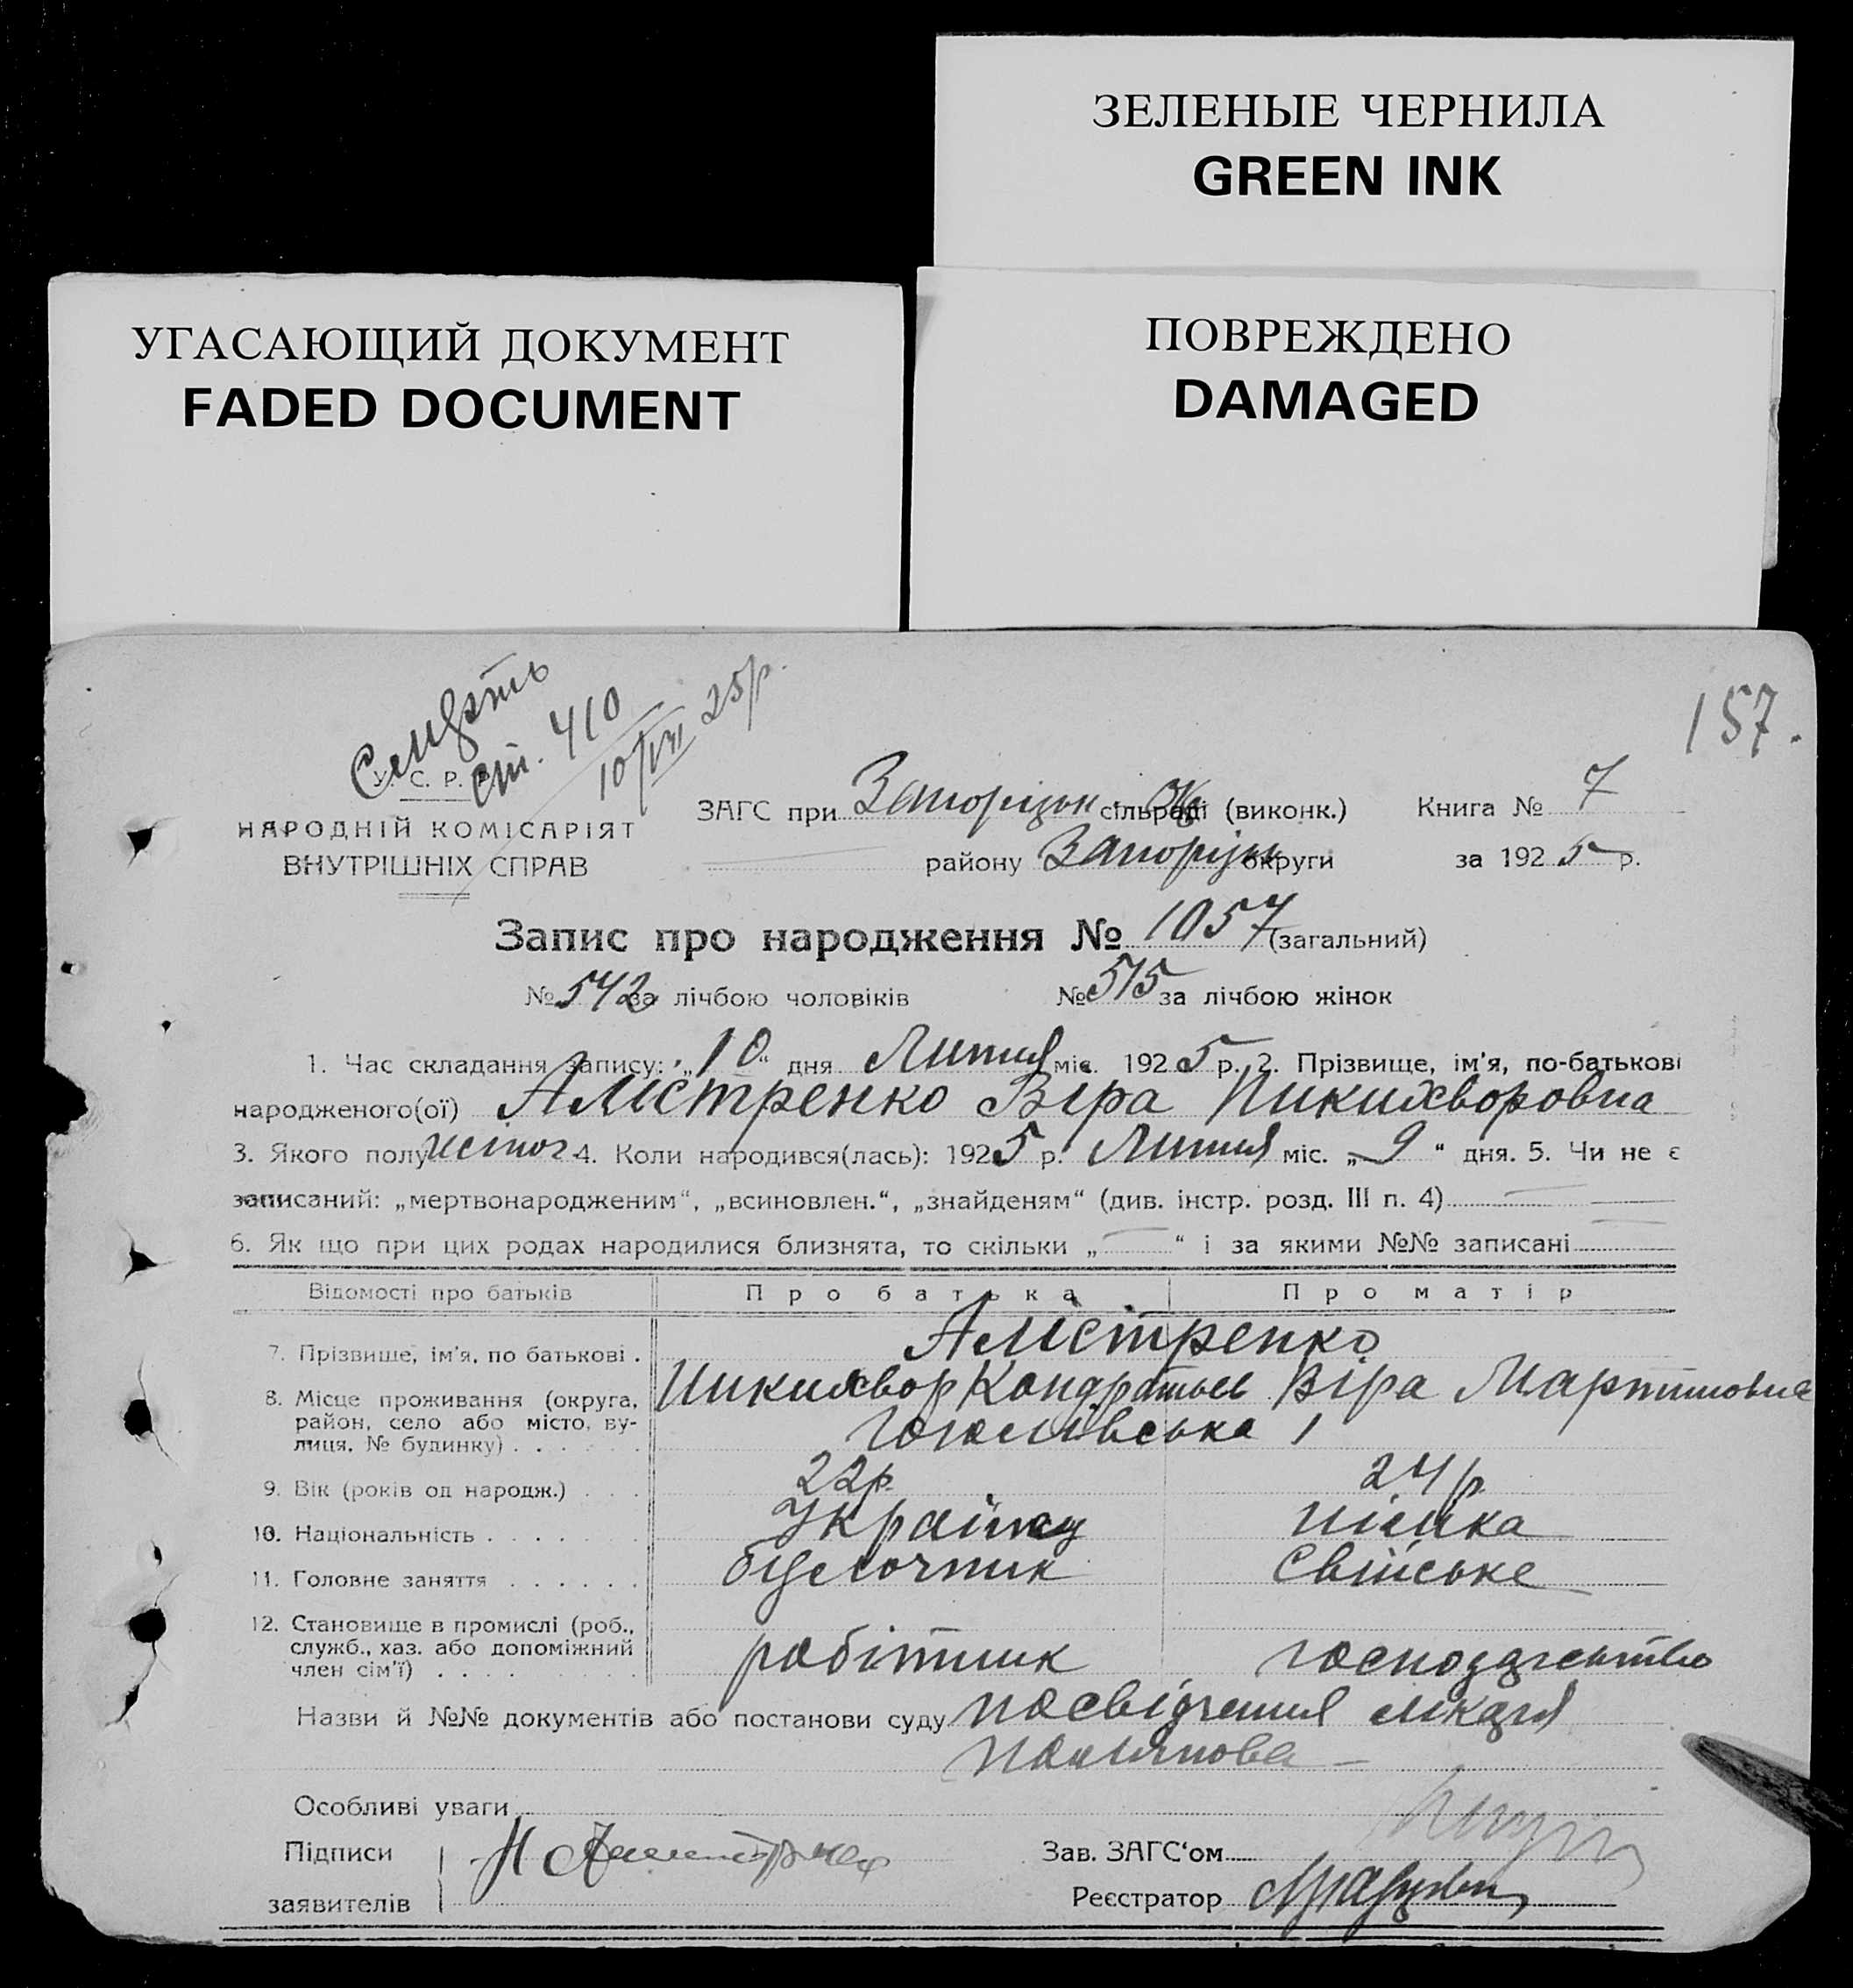 ЗЕЛЕНЫЕ ЧЕРНИЛА
GREEN INK
УГАСАЮЩИЙ ДОКУМЕНТ
FADED DOCUMENT
ПОВРЕЖДЕНО
DAMAGED
157.
Смерть
ст. 410
10/VII 25р.
У. С. Р. Р.
НАРОДНІЙ КОМІСАРІЯТ
ВНУТРІШНІХ СПРАВ
ЗАГС при Запорізьк сільраді (виконк.) Книга № 7
району Запорізьк округи за 1925 р.
Запис про народження № 1057 (загальний)
№ 542 за лічбою чоловіків № 515 за лічбою жінок
1. Час складання запису: „10“ дня Липня міс. 1925 р. 2. Прізвище, ім’я, по-батькові
народженого(ої) Алістренко Віра Никихворовна
3. Якого полу жіноч 4. Коли народився(лась): 1925 р. Липня міс. „9“ дня. 5. Чи не є
записаний: „мертвонародженим“, „всиновлен.“, „знайденям“ (див. інстр. розд. III п. 4)
6. Як що при цих родах народилися близнята, то скільки „—“ і за якими №№ записані
Відомості про батьків Про батька Про матір
7. Прізвише, ім’я, по батькові . Алістренко
Никихвор Кондратьев Віра Мартиновна
8. Місце проживання (округа,
район, село або місто, ву-
лиця, № будинку) . . . . . . Гоголівська 1
9. Вік (років од народж.) . . . 22р. 24р.
10. Національність . . . . . . . Україну німка
11. Головне заняття . . . . . . будочник Свійське
12. Становище в промислі (роб.,
служб., хаз. або допоміжний
член сім’ї) . . . . робітник господарство
Назви й №№ документів або постанови суду посвідчення лікаря
Особливі уваги
Підписи
заявителів
Зав. ЗАГС‘ом
Реєстратор